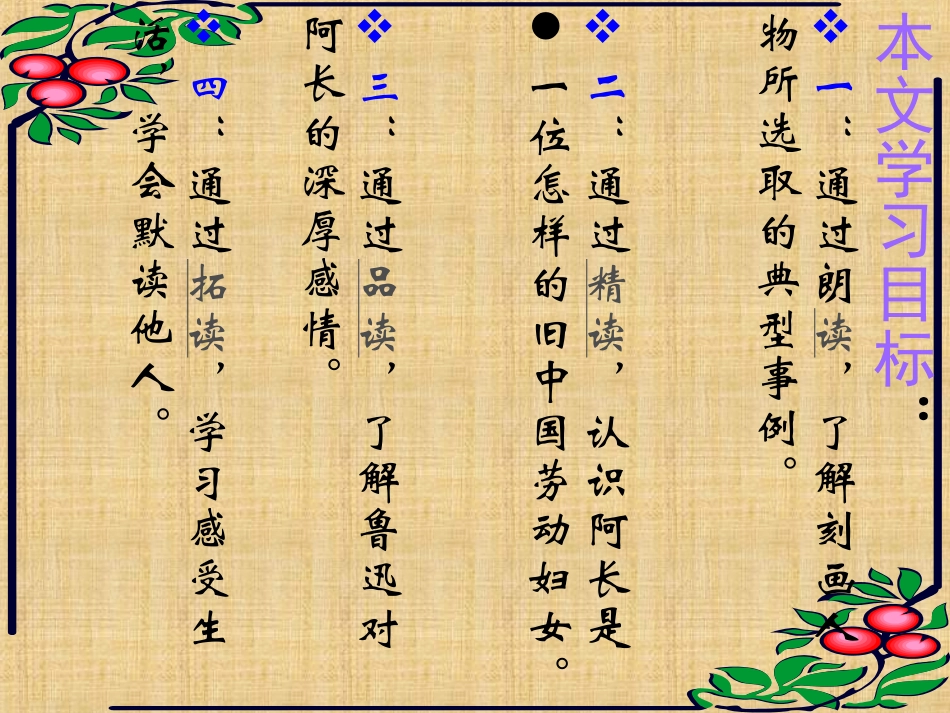 本文学习目标：
一：通过朗读，了解刻画人
物所选取的典型事例。
二：通过精读，认识阿长是
一位怎样的旧中国劳动妇女。
三：通过品读，了解鲁迅对
阿长的深厚感情。
四：通过拓读，学习感受生
活，学会默读他人。